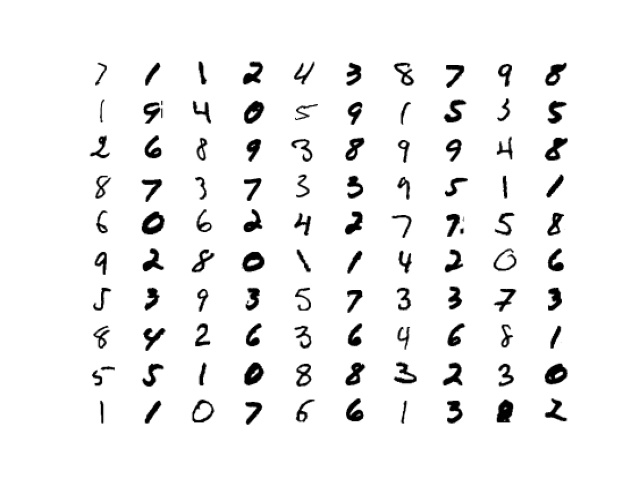 7 1 1 2 4 3 8 7 9 8
1 9 4 0 5 9 1 5 3 5
2 6 8 9 3 8 9 9 4 8
8 7 3 7 3 3 9 5 1 1
6 0 6 2 4 2 7 7 5 8
9 2 8 0 1 1 4 2 0 6
5 3 9 3 5 7 3 3 7 3
8 4 2 6 3 6 4 6 8 1
5 5 1 0 8 8 3 2 3 0
1 1 0 7 6 6 1 3 2